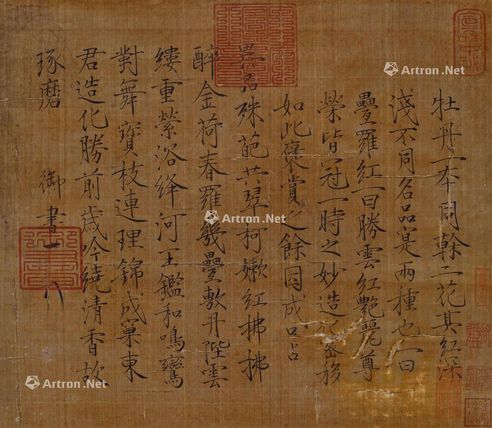 牡丹一本同幹二花其紅深
淺不同名品寔兩種也一曰
疊羅紅一曰勝雲紅艷麗尊
榮皆冠一時之妙造化密移
如此褒賞之餘因成口占
異品殊葩共翠柯嫩紅拂拂
醉金荷春羅幾疊敷丹陛雲
縷重縈浴絳河玉鑑和鳴鸞
對舞寶枝連理錦成窠東
君造化勝前歲吟繞清香故
琢磨 御書
Artron.Net
Artron.Net
Artron.Net
Artron.Net
Artron.Net